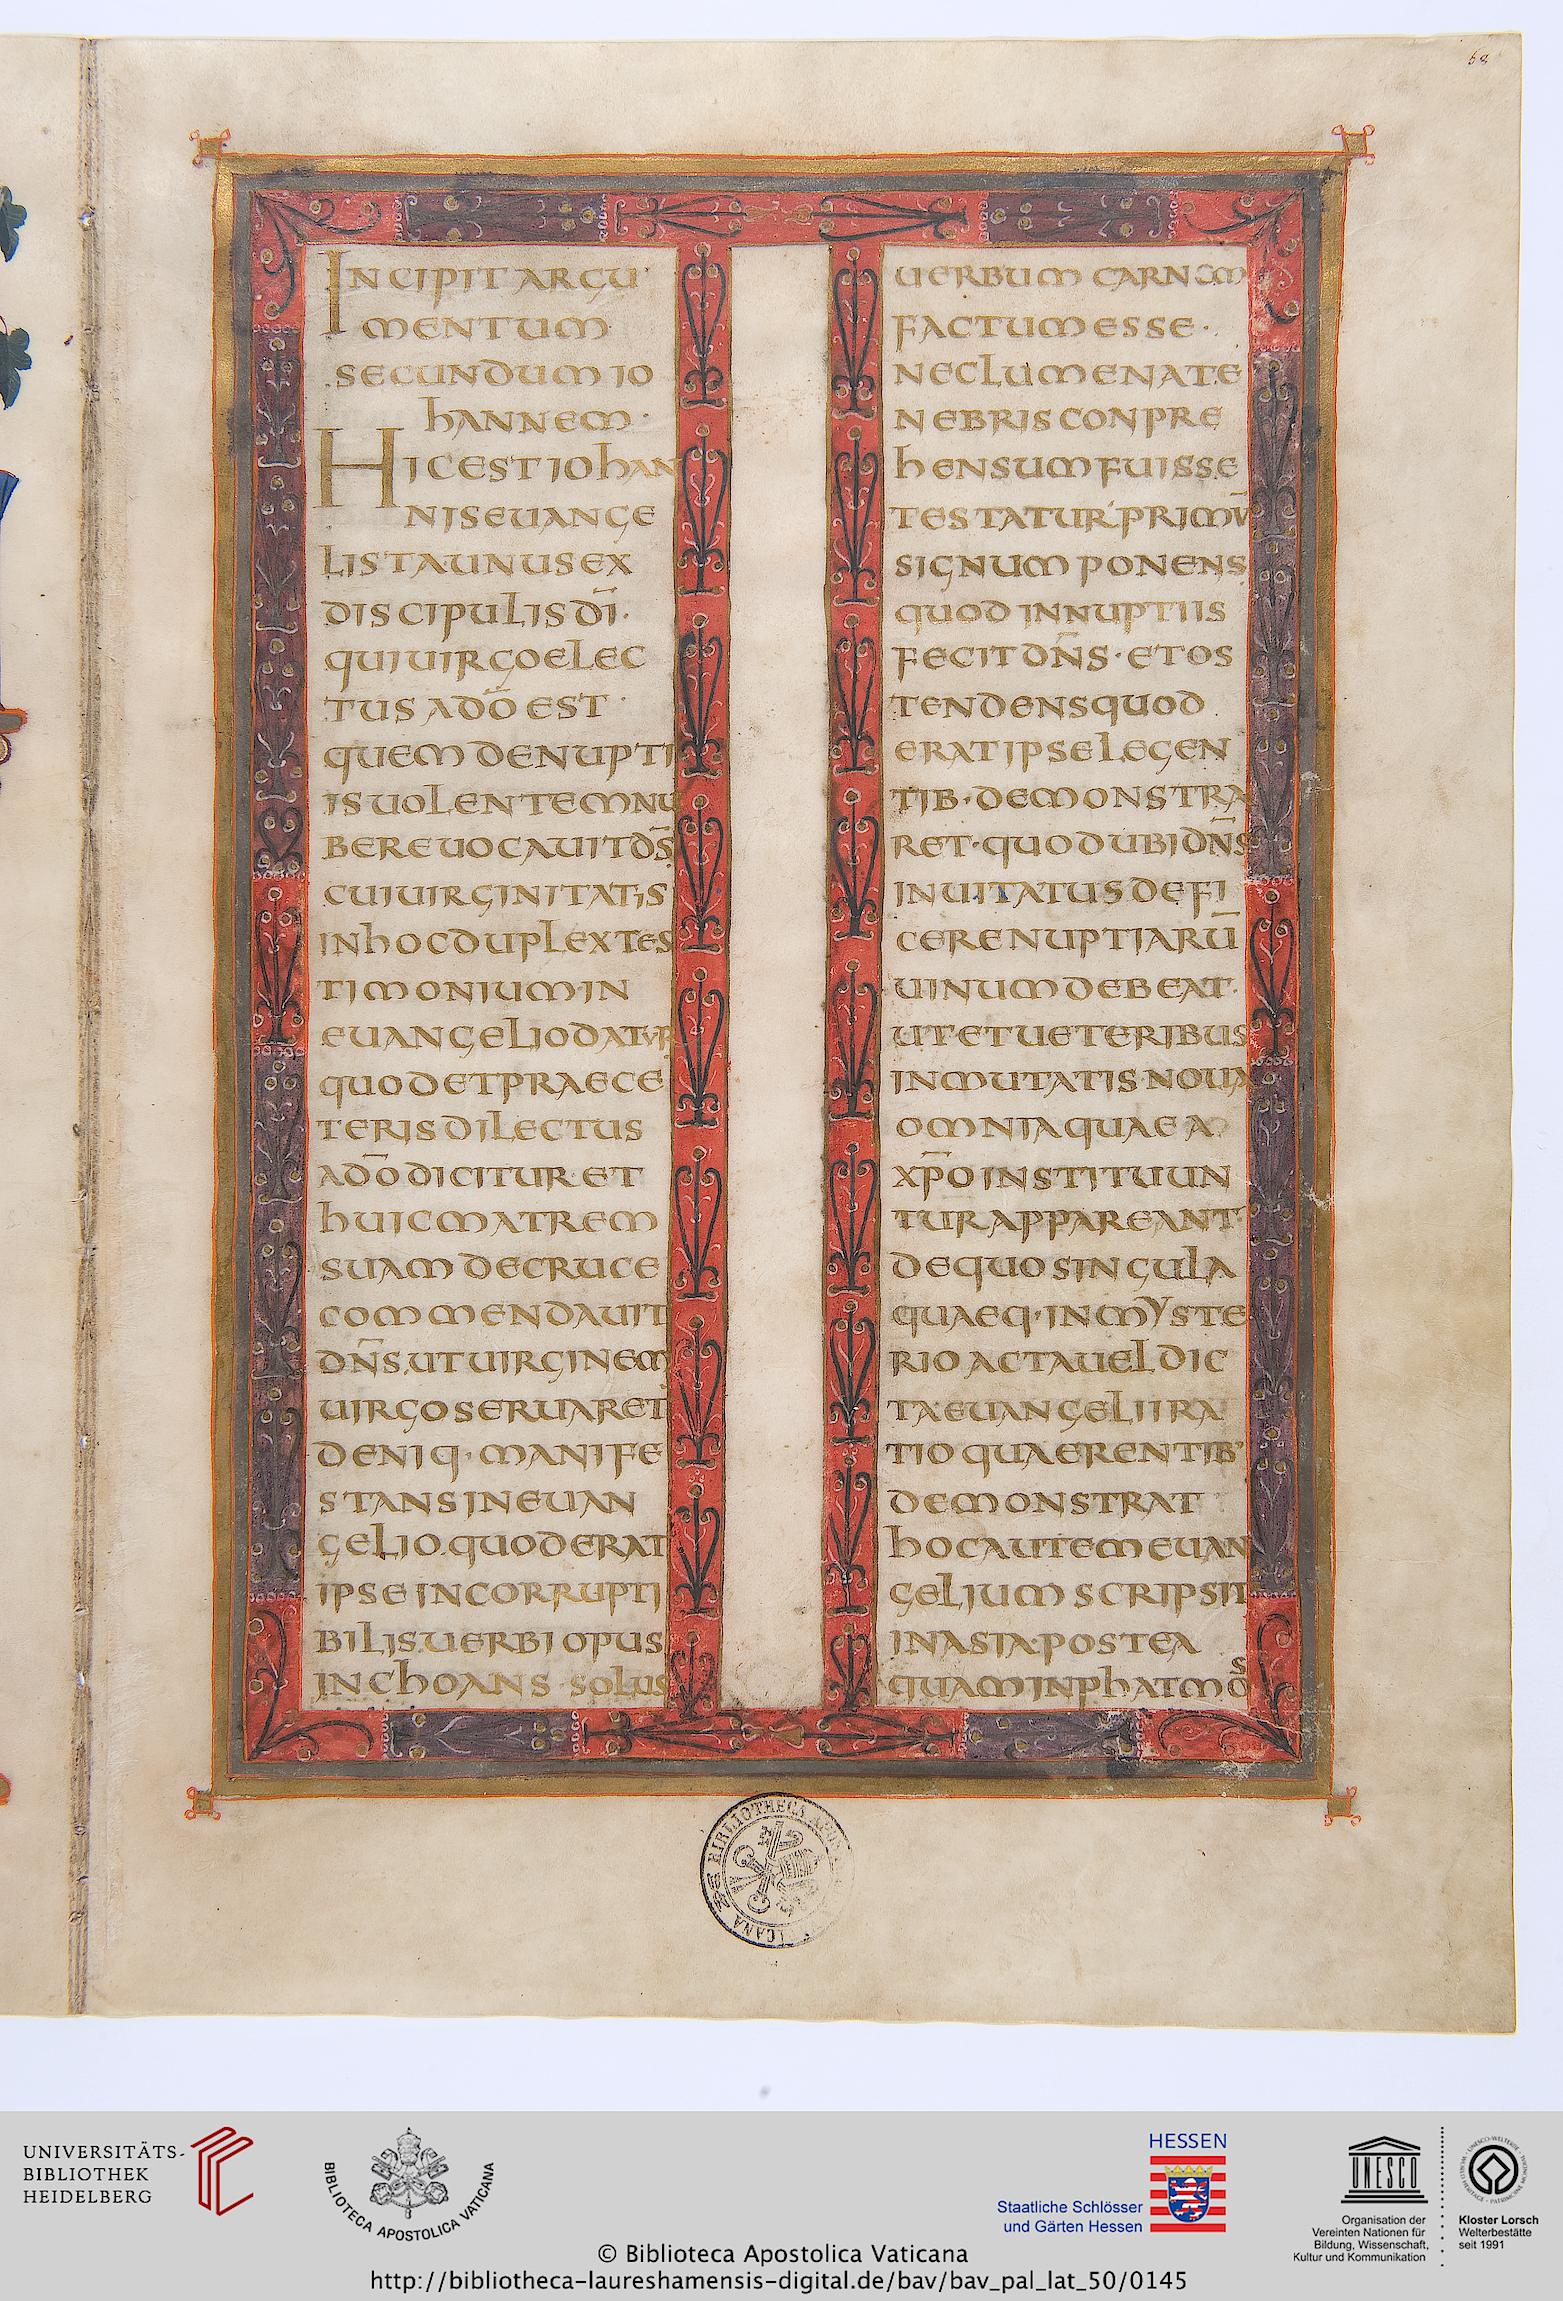 68
INCIPIT ARGU
MENTUM
SECUNDUM IO
HANNEM ·
HIC EST IOHAN
NIS EVANGE
LISTA UNUS EX
DISCIPULIS DI̅ ·
QUI UIRGO ELEC
TUS A DO̅ EST ·
QUEM DE NUPTI
IS UOLENTEM NU
BERE UOCAUIT DS̅
CUI UIRGINITATIS
IN HOC DUPLEX TES
TIMONIUM · IN
EUANGELIO DATUR
QUOD ET PRAE CE
TERIS DILECTUS
A DO̅ DICITUR · ET
HUIC MATREM
SUAM DE CRUCE
COMMENDAUIT
DN̅S · UT UIRGINEM
UIRGO SERUARET
DENIQ · MANIFE
STANS IN EUAN
GELIO · QUOD ERAT
IPSE INCORRUPTI
BILIS · UERBI OPUS
INCHOANS SOLUS
UERBUM CARNEM
FACTUM ESSE ·
NEC LUMEN A TE
NEBRIS CONPRE
HENSUM FUISSE
TESTATUR PRIMU̅
SIGNUM PONENS
QUOD IN NUPTIIS
FECIT DN̅S · ET OS
TENDENS QUOD
ERAT IPSE LEGEN
TIB · DEMONSTRA
RET · QUOD UBI DN̅S
INUITATUS DEFI
CERE NUPTIARU̅
UINUM DEBEAT ·
UT · ET UETERIBUS
INMUTATIS · NOUA
OMNIA QUAE A
XP̅O INSTITUUN
TUR APPAREANT ·
DE QUO SINGULA
QUAEQ · IN MYSTE
RIO ACTA UEL DIC
TA EUANGELII RA
TIO QUAERENTIB'
DEMONSTRAT
HOC AUTEM EUAN
GELIUM SCRIPSIT
IN ASIA · POSTEA
QUAM IN PHATMOS
UNIVERSITÄTS-
BIBLIOTHEK
HEIDELBERG
BIBLIOTECA APOSTOLICA VATICANA
HESSEN
Staatliche Schlösser
und Gärten Hessen
UNESCO
Organisation der
Vereinten Nationen für
Bildung, Wissenschaft,
Kultur und Kommunikation
Kloster Lorsch
Welterbestätte
seit 1991
© Biblioteca Apostolica Vaticana
http://bibliotheca-laureshamensis-digital.de/bav/bav_pal_lat_50/0145